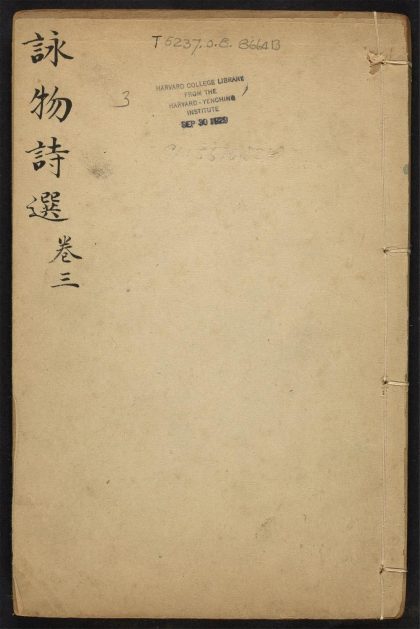 詠物詩選
卷三
3
HARVARD COLLEGE LIBRARY
FROM THE
HARVARD-YENCHING
INSTITUTE
SEP 30 1929